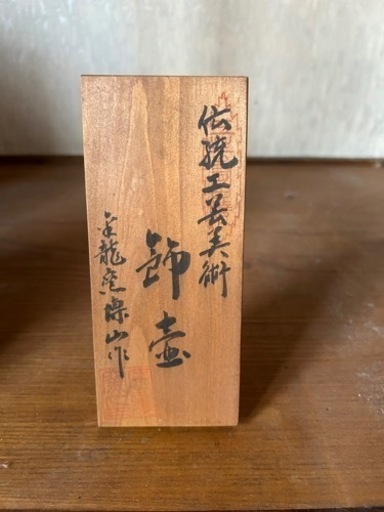 伝統工芸美術
飾壺
龍窯 山作